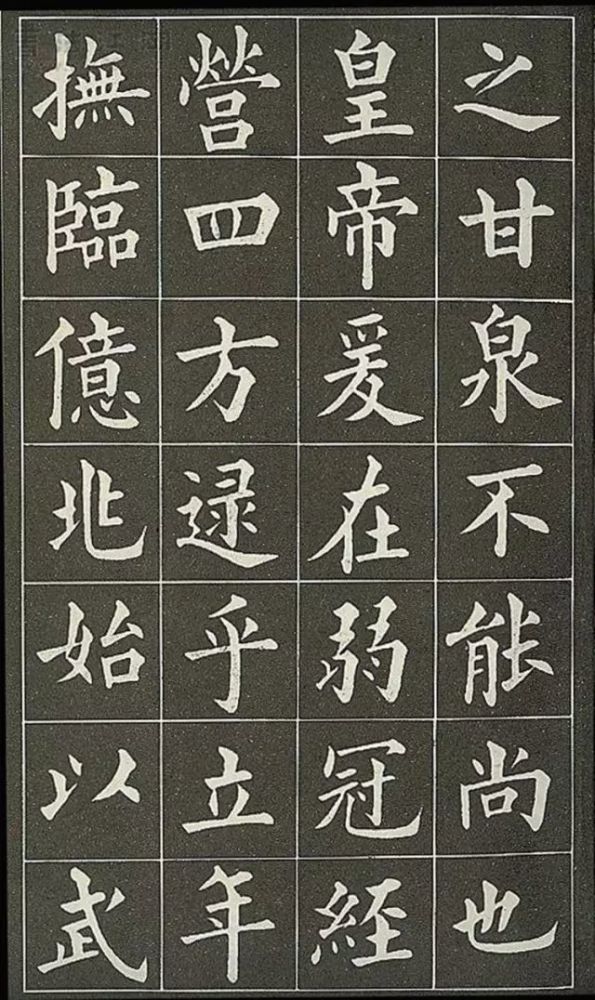 之甘泉不能尚也
皇帝爰在弱冠經
營四方逯乎立年
撫臨億兆始以武